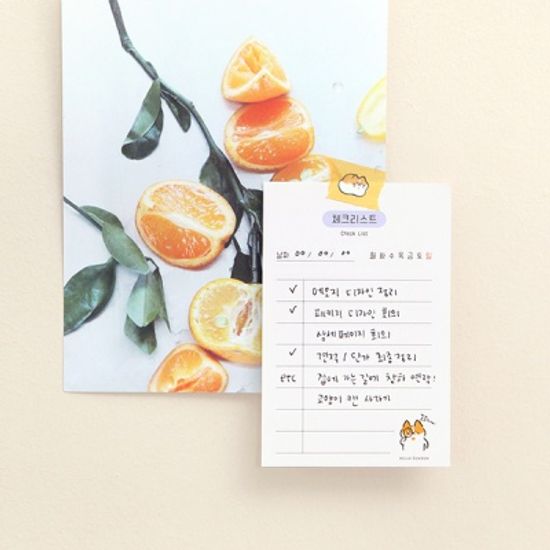 체크리스트
Check List
날짜 00 / 00 / 00 월화수목금토일
✓ 메모지 디자인 정리
✓ 패키지 디자인 회의
상세페이지 회의
✓ 견적 / 단가 최종정리
etc 집에 가는길에 창희 연락!
고양이 캔 사가기